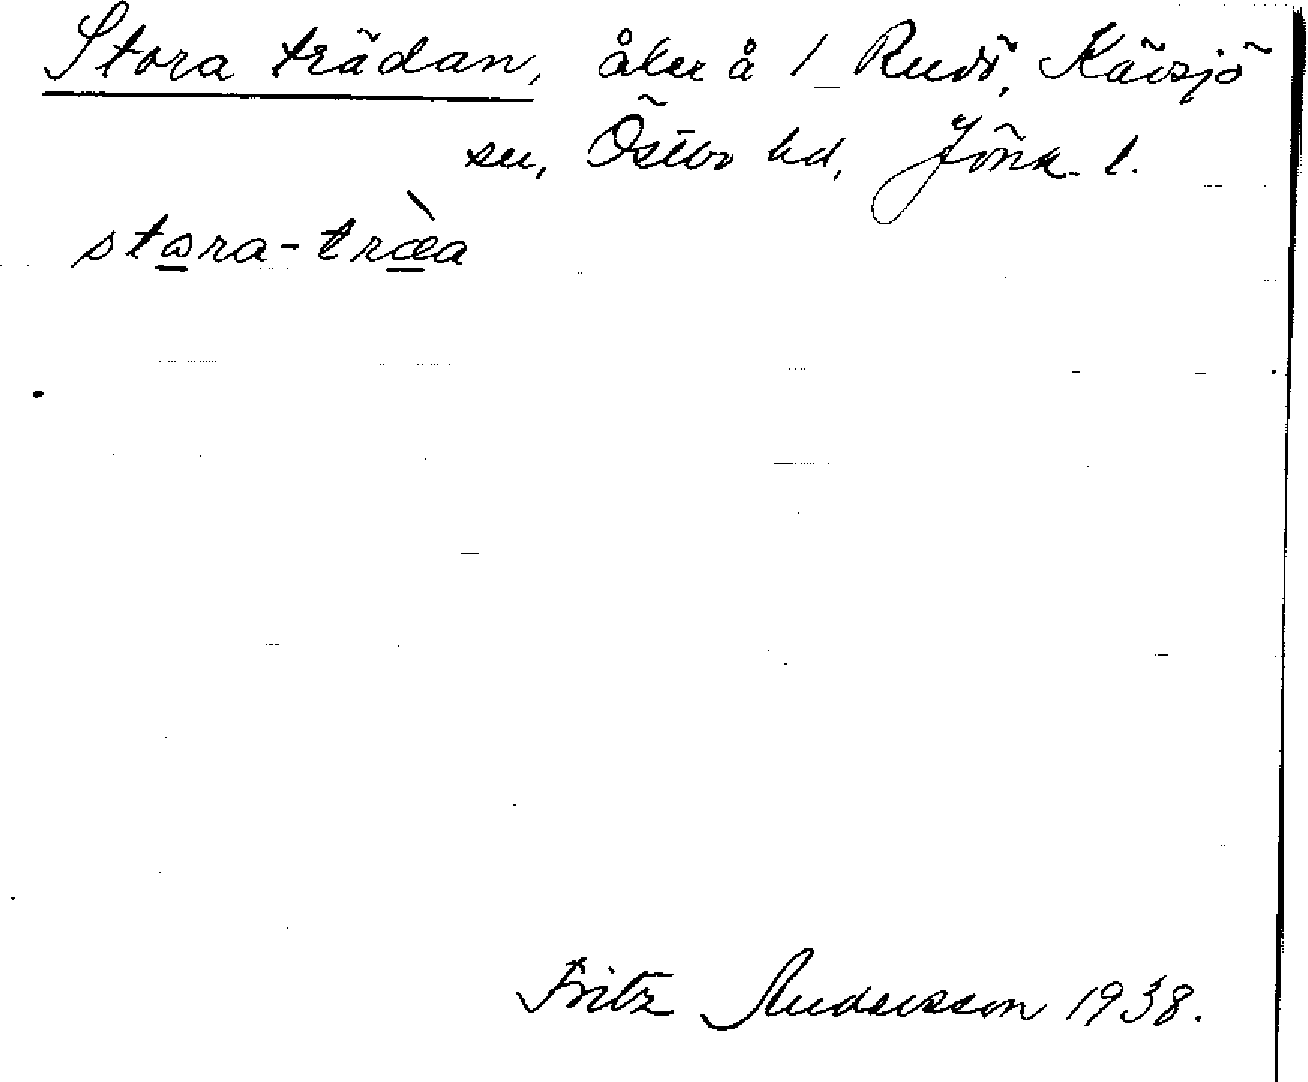 Stora trädan, åker å 1 Rudö, Kävsjö
sn, Östbo hd, Jönk. l.
stora-træ̀a
Fritz Andersson 1938.